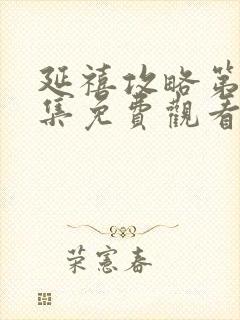 延禧攻略第
集免費觀看
荣憲春